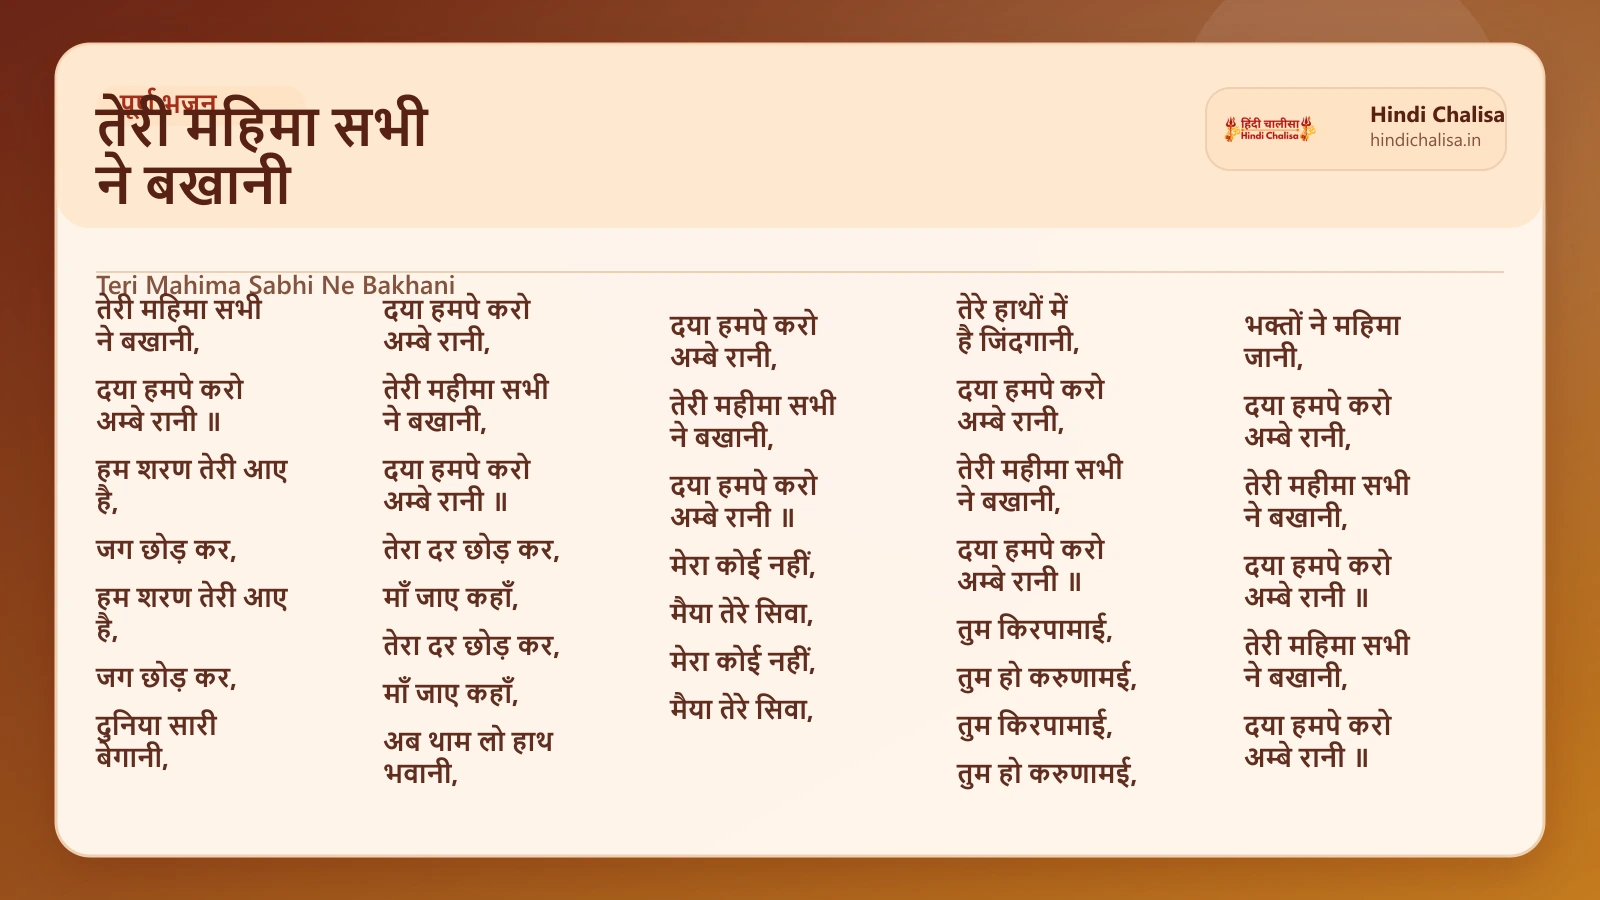 पूर्ण भजन
तेरी महिमा सभी
ने बखानी
हिंदी चालीसा
Hindi Chalisa
Hindi Chalisa
hindichalisa.in
Teri Mahima Sabhi Ne Bakhani
तेरी महिमा सभी
ने बखानी,
दया हमपे करो
अम्बे रानी ॥
हम शरण तेरी आए
है,
जग छोड़ कर,
हम शरण तेरी आए
है,
जग छोड़ कर,
दुनिया सारी
बेगानी,
दया हमपे करो
अम्बे रानी,
तेरी महीमा सभी
ने बखानी,
दया हमपे करो
अम्बे रानी ॥
तेरा दर छोड़ कर,
माँ जाए कहाँ,
तेरा दर छोड़ कर,
माँ जाए कहाँ,
अब थाम लो हाथ
भवानी,
दया हमपे करो
अम्बे रानी,
तेरी महीमा सभी
ने बखानी,
दया हमपे करो
अम्बे रानी ॥
मेरा कोई नहीं,
मैया तेरे सिवा,
मेरा कोई नहीं,
मैया तेरे सिवा,
तेरे हाथों में
है जिंदगानी,
दया हमपे करो
अम्बे रानी,
तेरी महीमा सभी
ने बखानी,
दया हमपे करो
अम्बे रानी ॥
तुम किरपामाई,
तुम हो करुणामई,
तुम किरपामाई,
तुम हो करुणामई,
भक्तों ने महिमा
जानी,
दया हमपे करो
अम्बे रानी,
तेरी महीमा सभी
ने बखानी,
दया हमपे करो
अम्बे रानी ॥
तेरी महिमा सभी
ने बखानी,
दया हमपे करो
अम्बे रानी ॥